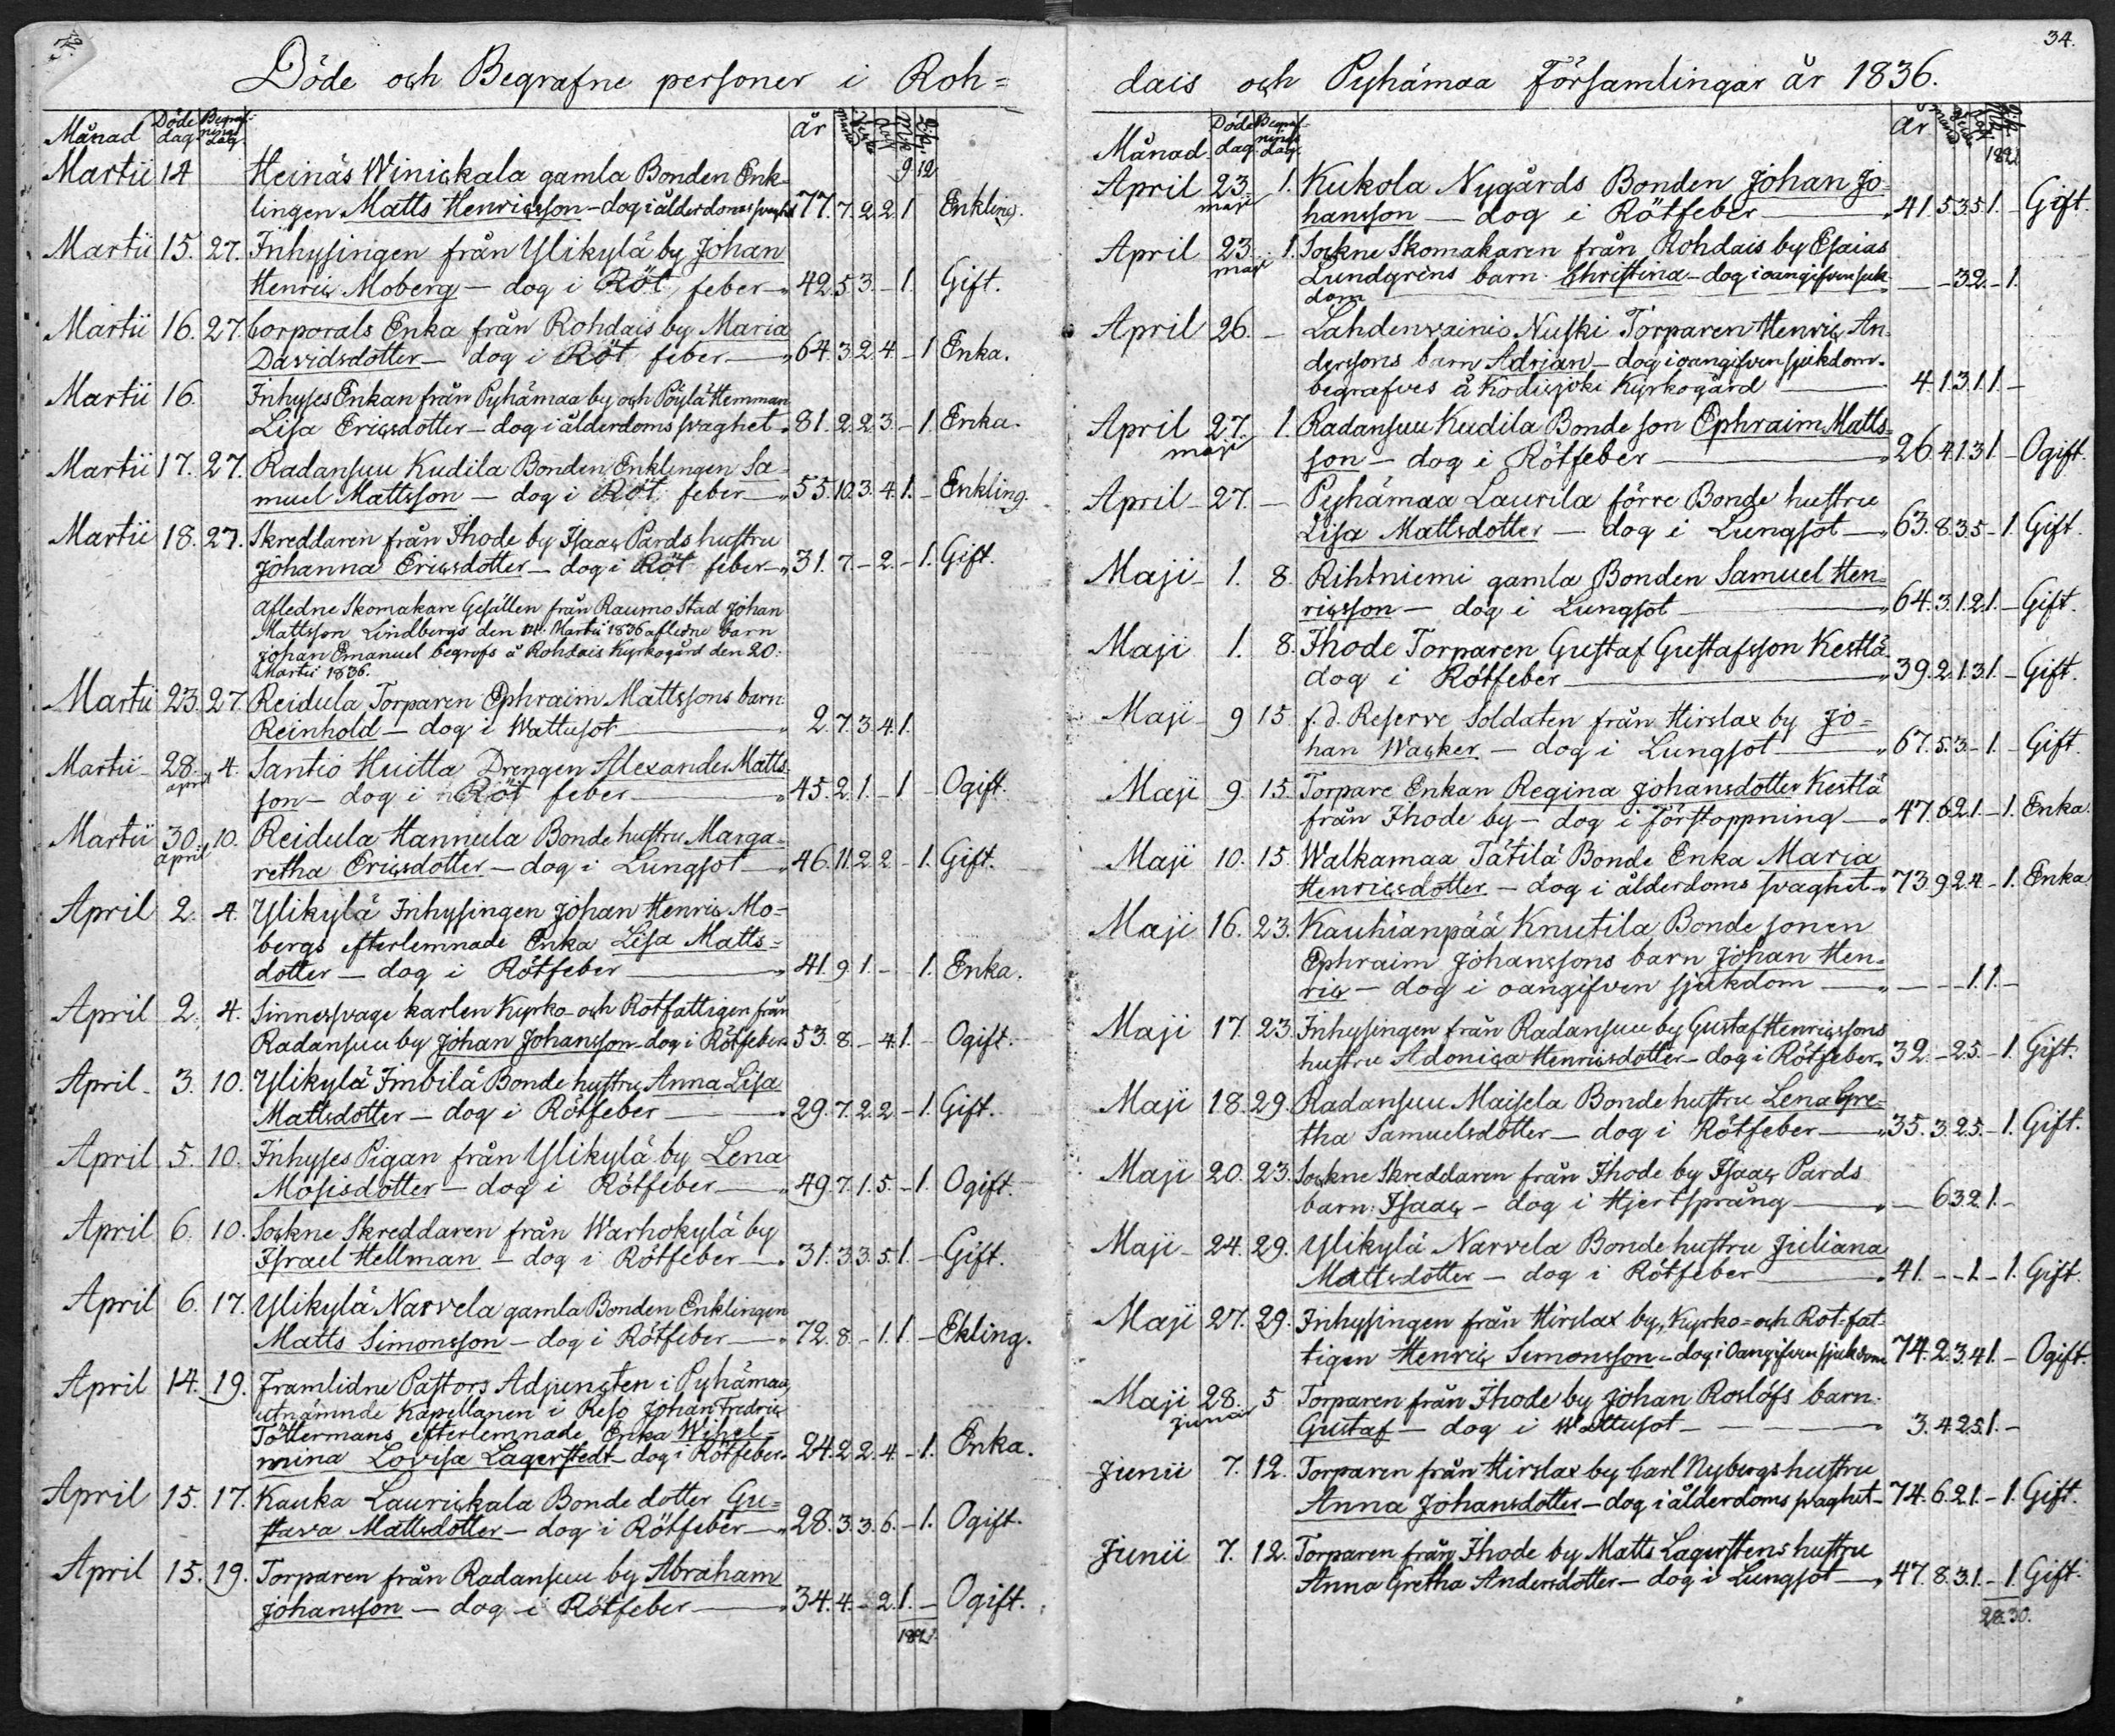 Döde och Begrafne personer i Roh=
Månad Döde dag. Begraf-nings dag. år
9 12
Martii 14 Heinäs Winickala gamla Bonden Enk-
lingen Matts Henricsson - dog i ålderdoms svaghet 77. 7. 2 2 1 Enkling.
Martii 15. 27. Inhysingen från Ylikylä by Johan
Henric Moberg - dog i Röt feber 42. 5 3. - 1. Gift.
Martii 16. 27. Corporals Enka från Rohdais by Maria
Davidsdotter - dog i Röt feber 64. 3 2. 4 - 1 Enka.
Martii 16. Inhyses Enkan från Pyhämaa by och Pöylä Hemman
Lisa Ericsdotter - dog i ålderdoms svaghet 81. 2. 2 3 - 1. Enka.
Martii 17. 27. Radansuu Kudila Bonden Enklingen Sa-
muel Mattsson - dog i Röt feber 55. 10. 3. 4. 1. - Enkling.
Martii 18. 27. Skreddaren från Ihode by Isaac Pards hustru
Johanna Ericsdotter - dog i Röt feber 31. 7 - 2. - 1. Gift.
Afledne Skomakare Gesällen från Raumo Stad Johan
Mattsson Lindbergs den 14. Martii 1836 afledne barn
Johan Emanuel begrofs å Rohdais Kyrkogård den 20.
Martii 1836.
Martii 23. 27. Reidula Torparen Ephraim Mattssons barn
Reinhold - dog i Wattusot 2. 7. 3. 4. 1.
Martii 28. april 4. Santio Huitta Drengen Alexander Matts
son - dog i Röt feber 45. 2. 1. - 1 - Ogift.
Martii 30. april 10. Reidula Hannula Bonde hustru Marga-
retha Ericsdotter - dog i Lungsot 46. 11. 2 2 - 1. Gift.
April 2. 4. Ylikylä Inhysingen Johan Henric Mo-
bergs efterlemnade Enka Lisa Matts-
dotter - dog i Rötfeber 41. 9 1. - 1. Enka.
April 2. 4. Sinnessvage karlen Kyrko- och Rotfattigen från
Radansuu by Johan Johansson - dog i Rötfeber 53. 8. - 4. 1. - Ogift.
April 3. 10. Ylikylä Imbilä Bonde hustru Anna Lisa
Mattsdotter - dog i Rötfeber 29. 7. 2 2 - 1. Gift.
April 5. 10. Inhyses Pigan från Ylikylä by Lena
Mosisdotter - dog i Rötfeber 49. 7. 1. 5. - 1 Ogift.
April 6. 10. Sockne Skreddaren från Warhokylä by
Israel Hellman - dog i Rötfeber 31. 3 3. 5. 1. - Gift.
April 6. 17. Ylikylä Narvela gamla Bonden Enklingen
Matts Simonsson - dog i Rötfeber 72. 8 - 1. 1. - Ekling.
April 14. 19. Framlidne Pastors Adjuncten i Pyhämaa,
utnämnde Kapellanen i Reso Johan Fredric
Töttermans efterlemnade Enka Wihel-
mina Lovisa Lagerstedt - dog i Rötfeber 24. 2 2. 4. - 1. Enka.
April 15. 17. Kauka Laurickala Bonde dotter Gu=
stava Mattsdotter - dog i Rötfeber 28. 3. 3. 6. - 1. Ogift.
April 15. 19. Torparen från Radansuu by Abraham
Johansson - dog i Rötfeber 34. 4. - 2. 1. - Ogift.
34.
dais och Pyhämaa Församlingar år 1836.
Månad Döde dag. Begraf-nings dag. år
April 23. maji 1. Kukola Nygårds Bonden Johan Jo-
hansson - dog i Rötfeber 41. 5 3. 5 1. - Gift.
April 23. maji 1. Sockne Skomakaren från Rohdais by Esaias
Lundgrens barn Christina - dog i oangifven sjuk-
dom - - 3 2. - 1.
April 26. - Lahdenvainio Nuski Torparen Henric An-
derssons barn Adrian - dog i oangifven sjukdom.
begrafves å Kodisjoki Kyrkogård 4. 1. 3. 1. 1. -
April 27. maji 1. Radansuu Kudila Bonde son Ephraim Matts-
son - dog i Rötfeber 26. 4. 1. 3 1. - Ogift.
April 27. - Pyhämaa Laurila förre Bonde hustru
Lisa Mattsdotter - dog i Lungsot 63. 8. 3. 5 - 1. Gift.
Maji 1. 8. Rihtniemi gamla Bonden Samuel Hen-
ricsson - dog i Lungsot 64. 3. 1. 2 1. - Gift.
Maji 1. 8. Ihode Torparen Gustaf Gustafsson Kestlä
dog i Rötfeber 39. 2. 1. 3 1. - Gift.
Maji 9 15. f.d. Reserve Soldaten från Hirslax by Jo=
han Wacker - dog i Lungsot 67. 5. 3. - 1. - Gift.
Maji 9. 15. Torpare Enkan Regina Johansdotter Kestlä
från Ihode by - dog i Förstoppning 47. 6 2 1. - 1. Enka.
Maji 10. 15. Walkamaa Tätilä Bonde Enka Maria
Henricsdotter - dog i ålderdoms svaghet 73. 9 2 4 - 1. Enka
Maji 16. 23. Kauhianpää Knutila Bonde sonen
Ephraim Johanssons barn Johan Hen-
ric - dog i oangifven sjukdom - - - 1. 1. -
Maji 17. 23. Inhysingen från Radansuu by Gustaf Henricssons
hustru Adonica Henricsdotter - dog i Rötfeber 32. - 2 5. - 1. Gift.
Maji 18. 29. Radansuu Maisela Bonde hustru Lena Gre-
tha Samuelsdotter - dog i Rötfeber 35. 3. 2 5. - 1. Gift.
Maji 20. 23. Sockne Skreddaren från Ihode by Isaac Pards
barn: Isaac - dog i Hjertsprång - 6 3 2 1. -
Maji 24. 29. Ylikylä Narvela Bonde hustru Juliana
Mattsdotter - dog i Rötfeber 41. - - 1 - 1. Gift.
Maji 27. 29. Inhysingen från Hirslax by, Kyrko= och Rot-fat-
tigen Henric Simonsson - dog i Oangifven sjukdom 74. 2. 3. 4 1. - Ogift.
Maji 28. junii 5 Torparen från Ihode by Johan Roslöfs barn.
Gustaf - dog i Wattusot 3. 4. 2 5. 1. -
Junii 7. 12. Torparen från Hirslax by Carl Nybergs hustru
Anna Johansdotter - dog i ålderdoms svaghet 74. 6. 2 1. - 1. Gift.
Junii 7. 12. Torparen från Ihode by Matts Lagerstens hustru
Anna Gretha Andersdotter - dog i Lungsot 47. 8. 3. 1. - 1. Gift.
28. 30.